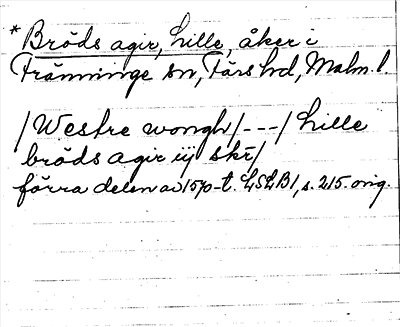 *Bröds agir, Lille, åker i
Tränninge sn, Färs hd, Malm. l.
/Westre wongh/---/ Lille
bröds agir iij skr/
förra delen av 1570-t. LSLB1, s. 215. orig.